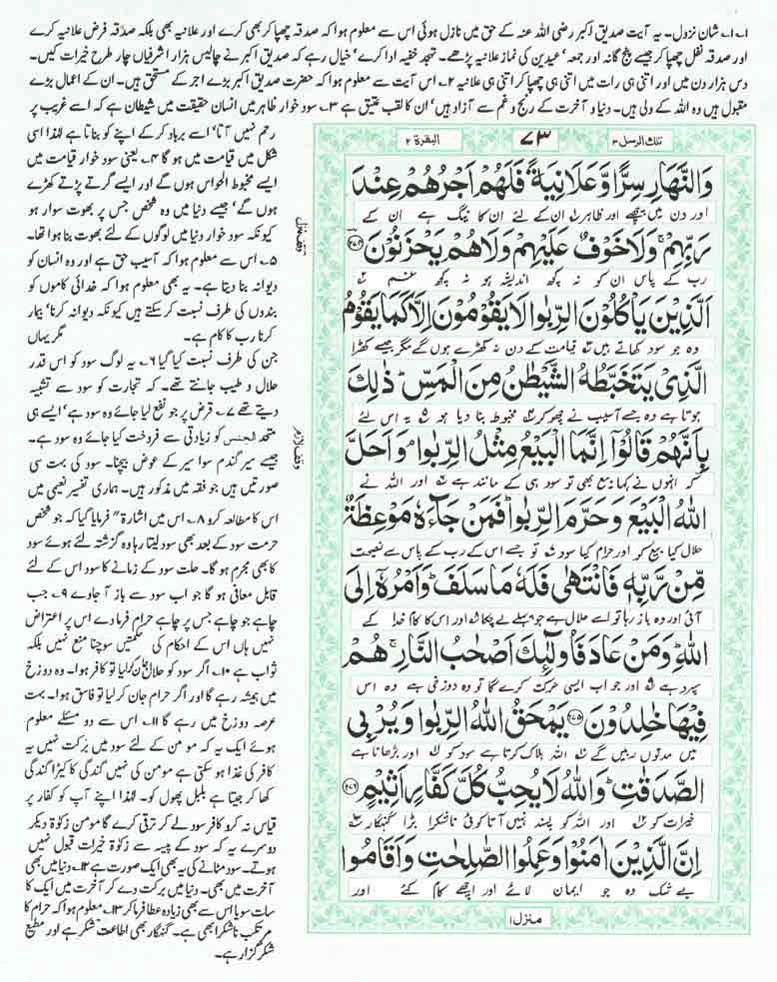 ۱۔ ۱۔ شان نزول۔ یہ آیت صدیق اکبر رضی اللہ عنہ کے حق میں نازل ہوئی اس سے معلوم ہوا کہ صدقہ چھپا کر بھی کرے اور علانیہ بھی بلکہ صدقہ فرض علانیہ کرے
اور صدقہ نفل چھپا کر جیسے پنج گانہ اور جمعہ' عیدین کی نماز علانیہ پڑھے۔ تہجد خفیہ ادا کرے' خیال رہے کہ صدیق اکبر نے چالیس ہزار اشرفیاں چار طرح خیرات کیں۔
دس ہزار دن میں اور اتنی ہی رات میں اتنی ہی چھپا کر اتنی ہی علانیہ ۲۔ اس آیت سے معلوم ہوا کہ حضرت صدیق اکبر بڑے اجر کے مستحق ہیں۔ ان کے اعمال بڑے
مقبول ہیں وہ اللہ کے ولی ہیں۔ دنیا و آخرت کے رنج و غم سے آزاد ہیں' ان کا لقب عتیق ہے ۳۔ سود خوار ظاہر میں انسان حقیقت میں شیطان ہے کہ اسے غریب پر
رحم نہیں آتا' اسے برباد کر کے اپنے کو بناتا ہے لہٰذا اسی
شکل میں قیامت میں ہو گا ۴۔ یعنی سود خوار قیامت میں
ایسے مخبوط الحواس ہوں گے اور ایسے گرتے پڑتے کھڑے
ہوں گے' جیسے دنیا میں وہ شخص جس پر بھوت سوار ہو
کیونکہ سود خوار دنیا میں لوگوں کے لئے بھوت بنا ہوا تھا۔
۵۔ اس سے معلوم ہوا کہ آسیب حق ہے اور وہ انسان کو
دیوانہ بنا دیتا ہے۔ یہ بھی معلوم ہوا کہ خدائی کاموں کو
بندوں کی طرف نسبت کر سکتے ہیں کیونکہ دیوانہ کرنا' بیمار
کرنا رب کا کام ہے۔ مگر یہاں
جن کی طرف نسبت کیا گیا ۶۔ یہ لوگ سود کو اس قدر
حلال و طیب جانتے تھے۔ کہ تجارت کو سود سے تشبیہ
دیتے تھے ۷۔ قرض پر جو نفع لیا جائے وہ سود ہے' ایسے ہی
متحد الجنس کو زیادتی سے فروخت کیا جائے وہ سود ہے۔
جیسے سیر گندم سوا سیر کے عوض بیچنا۔ سود کی بہت سی
صورتیں ہیں جو فقہ میں مذکور ہیں۔ ہماری تفسیر نعیمی میں
اس کا مطالعہ کرو ۸۔ اس میں اشارۃ" فرمایا گیا کہ جو شخص
حرمت سود کے بعد بھی سود لیتا رہا وہ گزشتہ لئے ہوئے سود
کا بھی مجرم ہو گا۔ حلت سود کے زمانے کا سود اس کے لئے
قابل معافی ہو گا جو اب سود سے باز آ جاوے ۹۔ جب
چاہے جو چاہے جس پر چاہے حرام فرما دے اس پر اعتراض
نہیں ہاں اس کے احکام کی حکمتیں سوچنا منع نہیں بلکہ
ثواب ہے ۱۰۔ اگر سود کو حلال جان کر لیا تو کافر ہوا۔ وہ دوزخ
میں ہمیشہ رہے گا اور اگر حرام جان کر لیا تو فاسق ہوا۔ بہت
عرصہ دوزخ میں رہے گا ۱۱۔ اس سے دو مسئلے معلوم
ہوئے ایک یہ کہ مومن کے لئے سود میں برکت نہیں یہ
کافر کی غذا ہو سکتی ہے مومن کی نہیں گندگی کا کیڑا گندگی
کھا کر جیتا ہے بلبل پھول کو۔ لہٰذا اپنے آپ کو کفار پر
قیاس نہ کرو کافر سود لے کر ترقی کرے گا مومن زکوٰۃ دیکر
دوسرے یہ کہ سود کے پیسہ سے زکوٰۃ خیرات قبول نہیں
ہوتے۔ سود مٹانے کی یہ بھی ایک صورت ہے ۱۲۔ دنیا میں بھی
آخرت میں بھی۔ دنیا میں برکت دے کر آخرت میں ایک کا
سات سو یا اس سے بھی زیادہ عطا فرما کر ۱۳۔ معلوم ہوا کہ حرام کا
مرتکب ناشکرا بھی ہے۔ گنہگار بھی اطاعت شکر ہے اور مطیع
شکر گزار ہے۔
تلك الرسل ۳ ۷۳ البقرة ۲
وَالنَّهَارِ سِرًّا وَّعَلَانِيَةً فَلَهُمْ اَجْرُهُمْ عِنْدَ
اور دن میں چھپے اور ظاہر ان کے لئے ان کا نیگ ہے ان کے
رَبِّهِمْ وَلَا خَوْفٌ عَلَيْهِمْ وَلَا هُمْ يَحْزَنُوْنَ
رب کے پاس ان کو نہ کچھ اندیشہ ہو نہ کچھ غم
اَلَّذِيْنَ يَاْكُلُوْنَ الرِّبٰوا لَا يَقُوْمُوْنَ اِلَّا كَمَا يَقُوْمُ
وہ جو سود کھاتے ہیں قیامت کے دن نہ کھڑے ہوں گے مگر جیسے کھڑا
الَّذِيْ يَتَخَبَّطُهُ الشَّيْطٰنُ مِنَ الْمَسِّ ذٰلِكَ
ہوتا ہے وہ جسے آسیب نے چھو کر مخبوط بنا دیا ہو یہ اس لئے
بِاَنَّهُمْ قَالُوْٓا اِنَّمَا الْبَيْعُ مِثْلُ الرِّبٰوا وَاَحَلَّ
کہ انہوں نے کہا بیع بھی تو سود ہی کے مانند ہے اور اللہ نے
اللّٰهُ الْبَيْعَ وَحَرَّمَ الرِّبٰوا فَمَنْ جَآءَهٗ مَوْعِظَةٌ
حلال کیا بیع کو اور حرام کیا سود تو جسے اس کے رب کے پاس سے نصیحت
مِّنْ رَّبِّهٖ فَانْتَهٰى فَلَهٗ مَا سَلَفَ وَاَمْرُهٗٓ اِلَى
آئی اور وہ باز رہا تو اسے حلال ہے جو پہلے لے چکا اور اس کا کام خدا کے
اللّٰهِ وَمَنْ عَادَ فَاُولٰٓئِكَ اَصْحٰبُ النَّارِ هُمْ
سپرد ہے اور جو اب ایسی حرکت کرے گا تو وہ دوزخی ہے وہ اس
فِيْهَا خٰلِدُوْنَ ۲۷۵ يَمْحَقُ اللّٰهُ الرِّبٰوا وَيُرْبِي
میں مدتوں رہیں گے اللہ ہلاک کرتا ہے سود کو اور بڑھاتا ہے
الصَّدَقٰتِ وَاللّٰهُ لَا يُحِبُّ كُلَّ كَفَّارٍ اَثِيْمٍ ۲۷۶
خیرات کو اور اللہ کو پسند نہیں آتا کوئی ناشکرا بڑا گنہگار
اِنَّ الَّذِيْنَ اٰمَنُوْا وَعَمِلُوا الصّٰلِحٰتِ وَاَقَامُوا
بے شک وہ جو ایمان لائے اور اچھے کام کئے اور
منزل ۱
وقف لازم